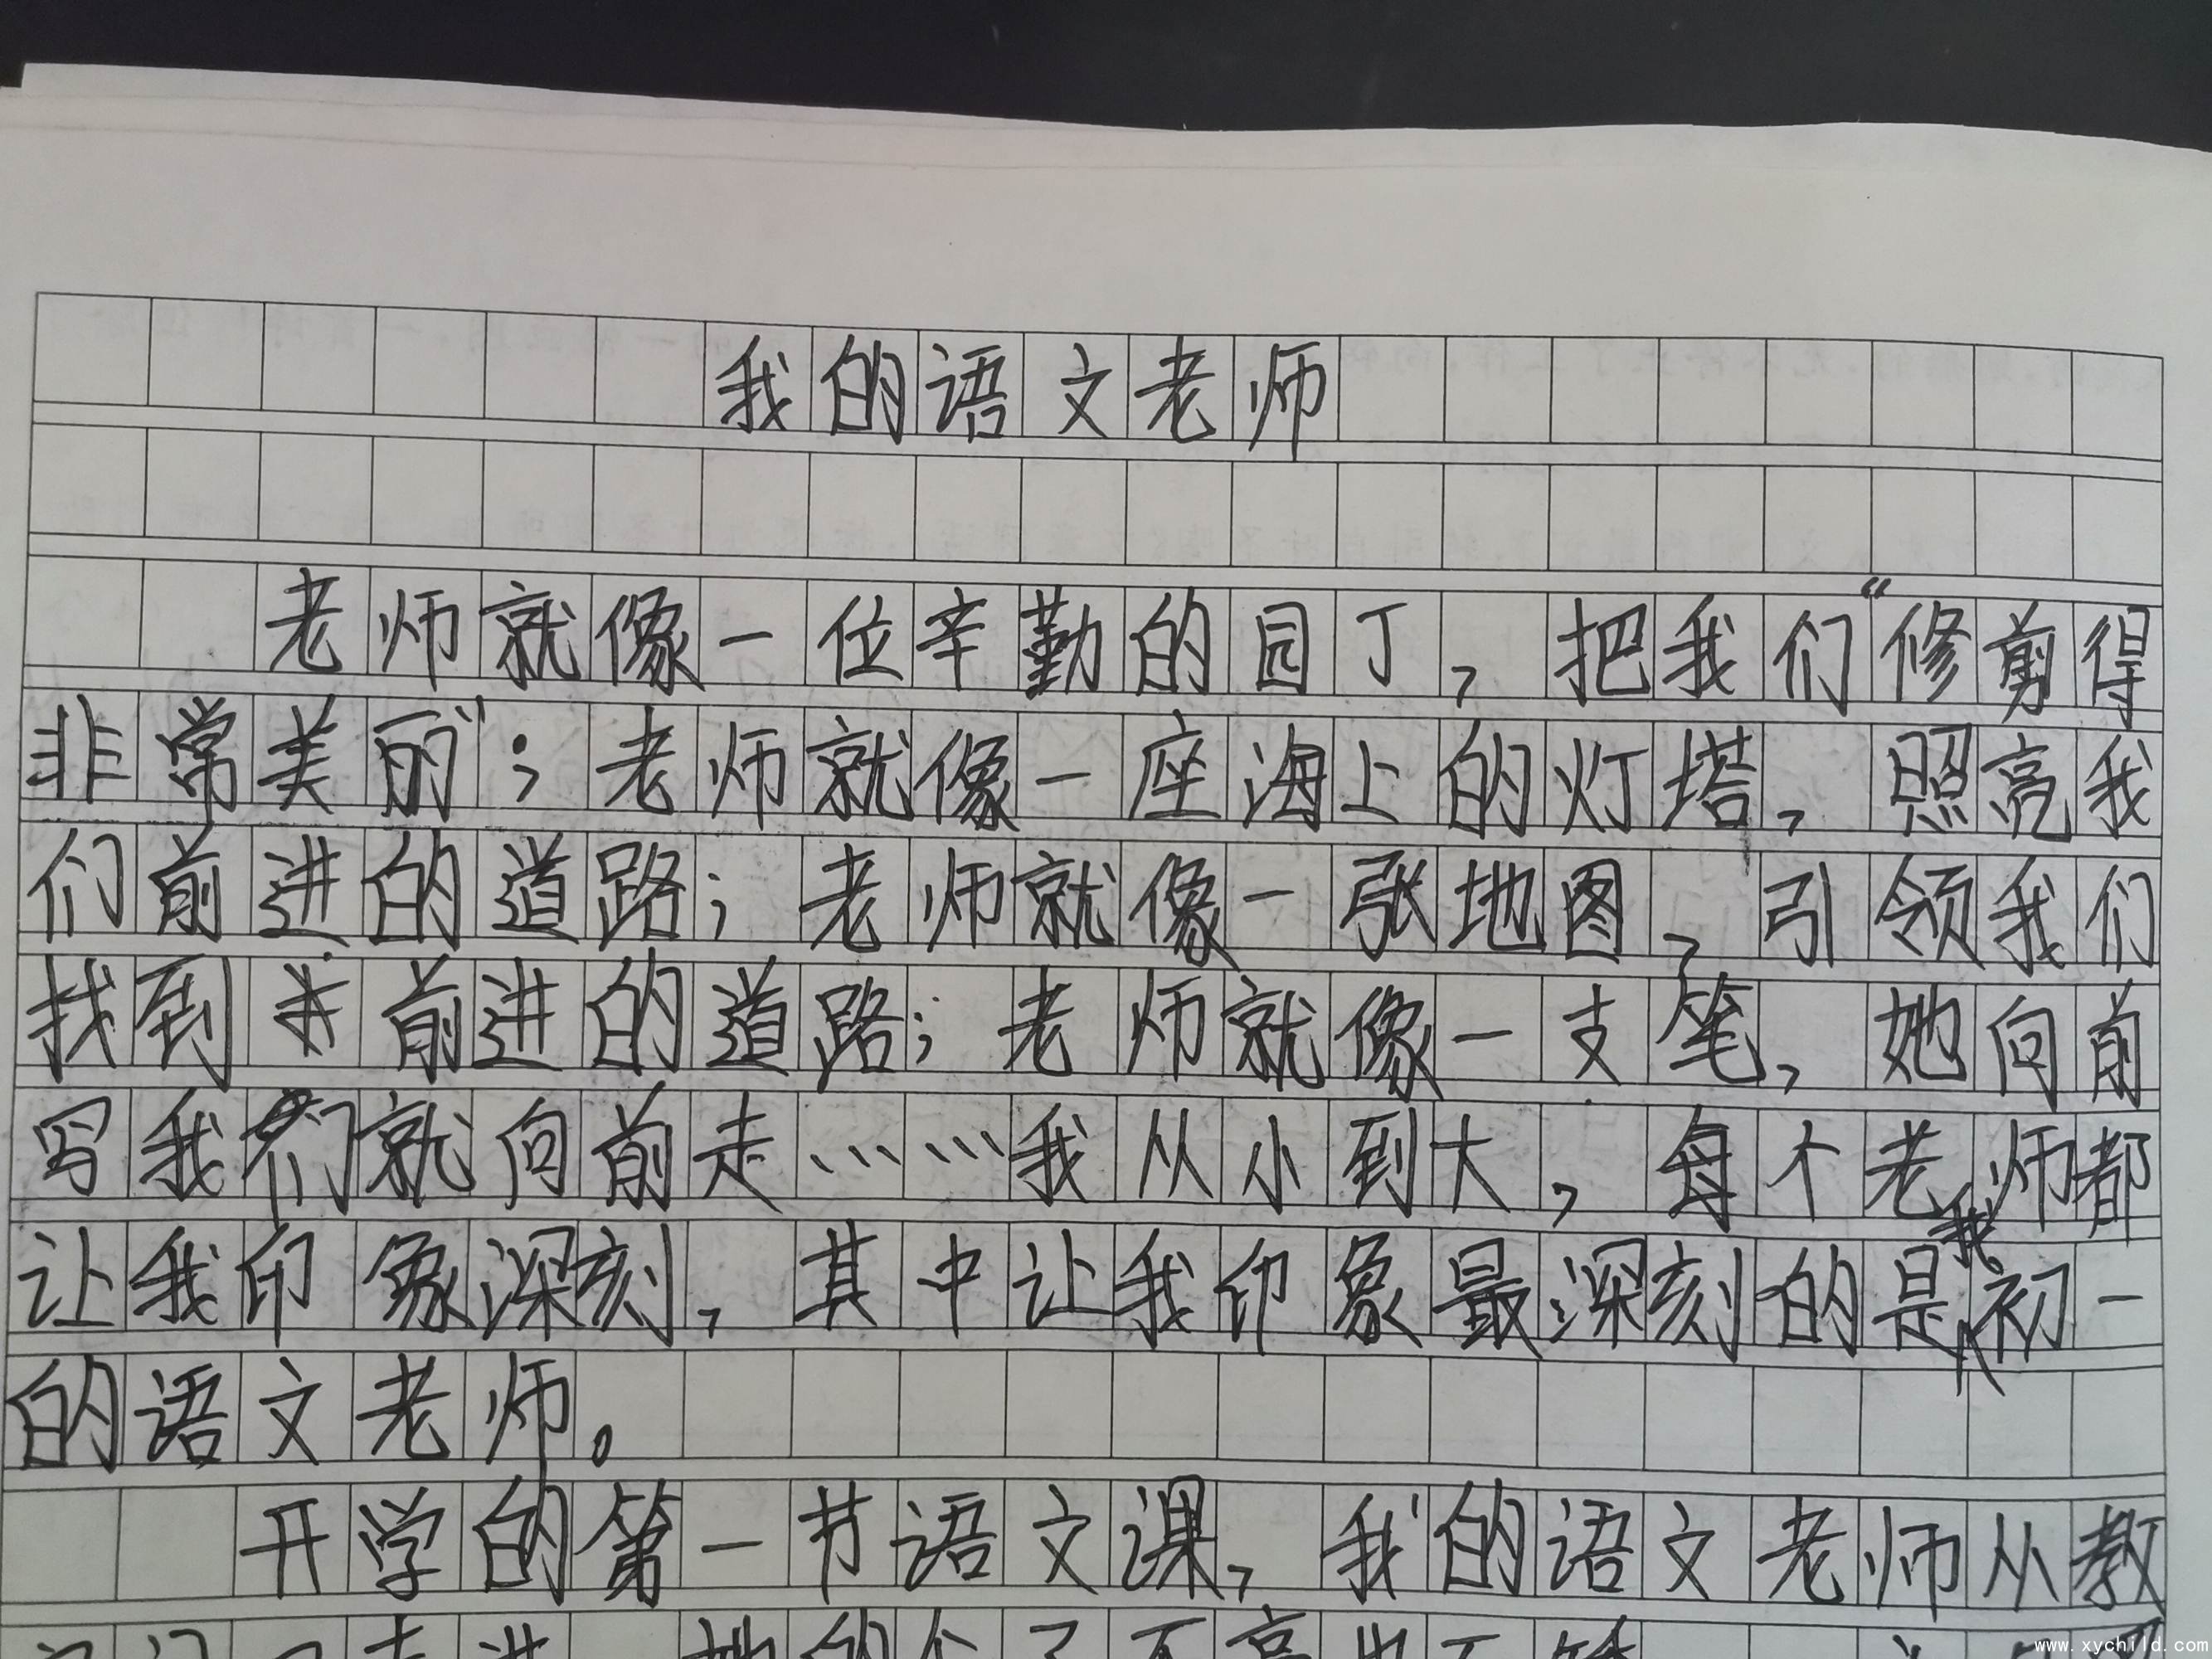 我的语文老师
老师就像一位辛勤的园丁，把我们“修剪得
非常美丽”；老师就像一座海上的灯塔，照亮我
们前进的道路；老师就像一张地图，引领我们
找到前进的道路；老师就像一支笔，她向前
写我们就向前走……我从小到大，每个老师都
让我印象深刻，其中让我印象最深刻的是我初一
的语文老师。
开学的第一节语文课，我的语文老师从教
www.xychild.com